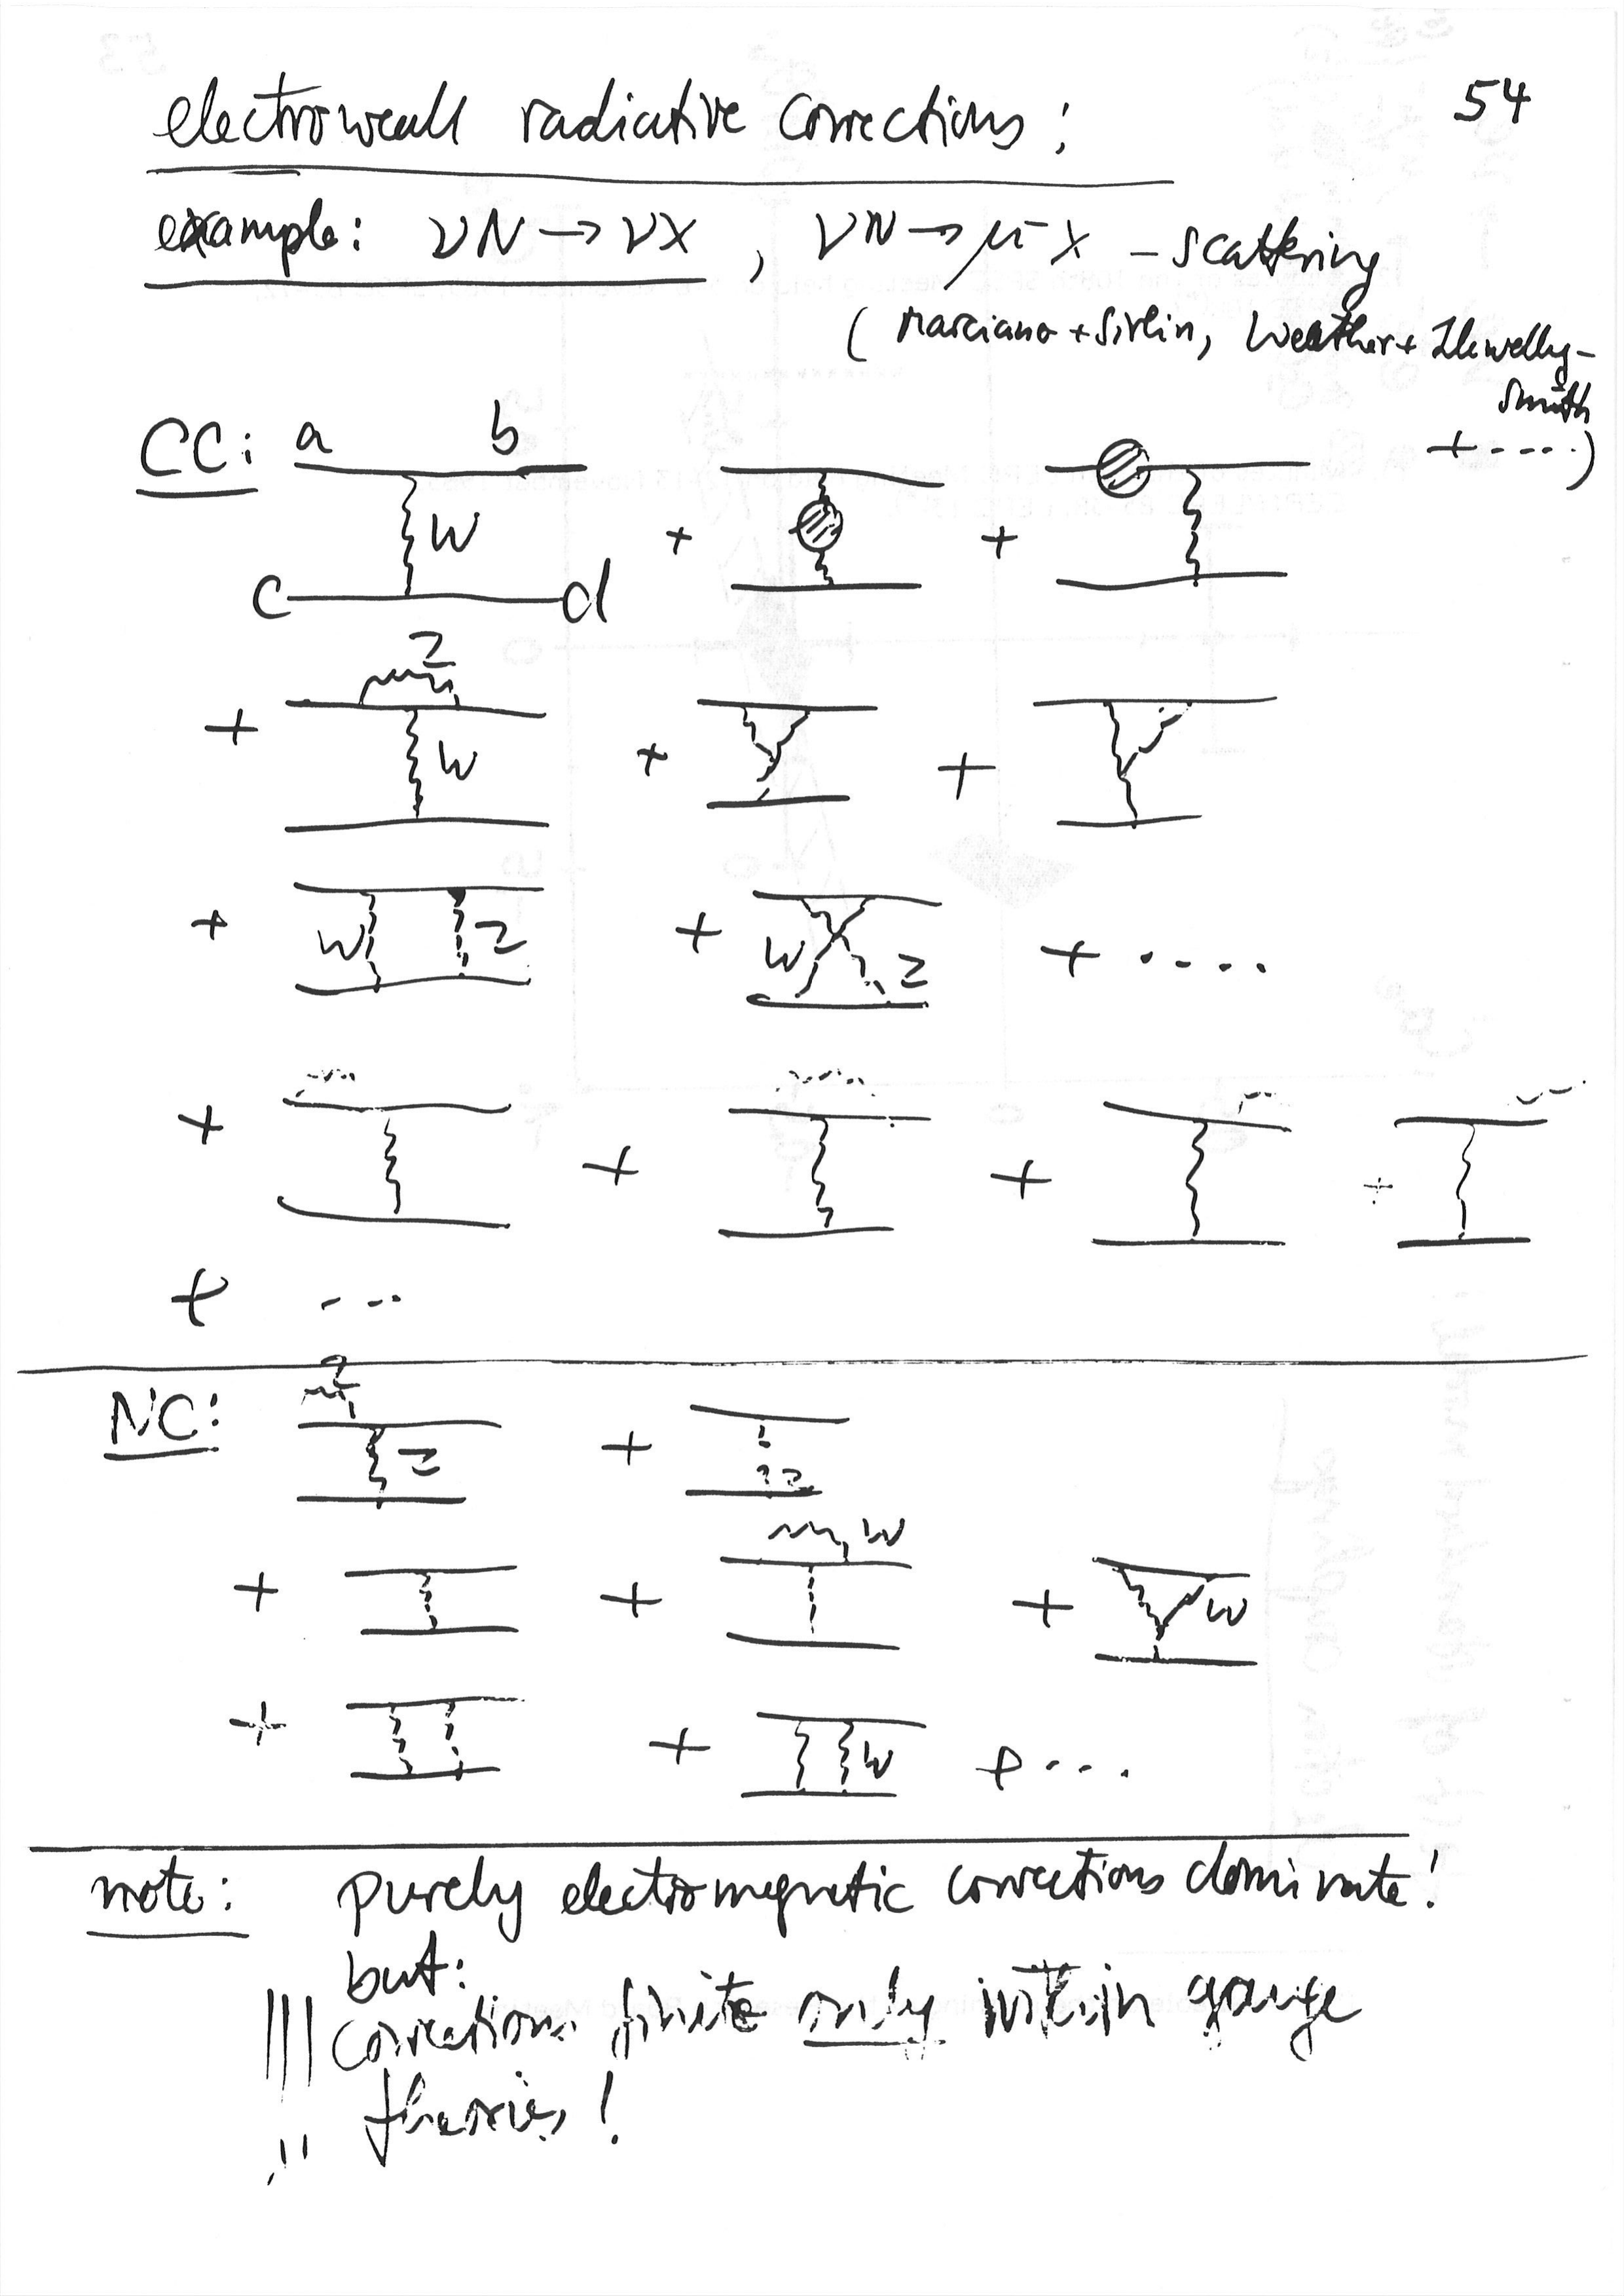 54
electroweak radiative corrections:
example: νN → νX , νN → μ⁻X - scattering
(Marciano + Sirlin, Weather + Llewelly-
Smith
+ ....)
CC: a b
W
c d
+ +
Z
+ W + +
+ W Z + W Z + ....
+ + + +
+ ...
NC: Z
Z + Z
+ + W + W
+ + W + ...
note: purely electromagnetic corrections dominate!
but:
corrections finite only within gauge
theories!